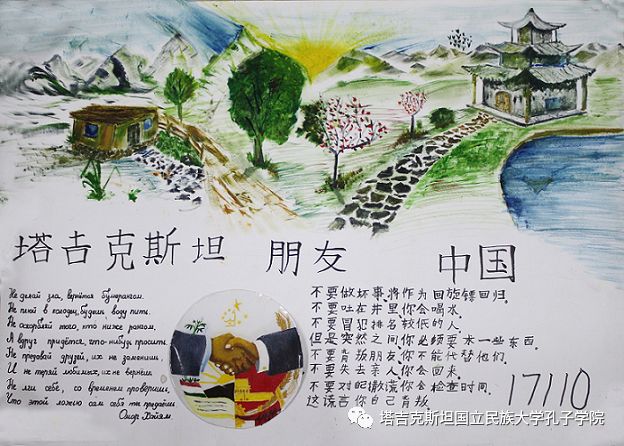 塔吉克斯坦 朋友 中国
Не делай зла, вернётся бумерангом.
Не плюй в колодец, будешь воду пить.
Не оскорбляй того, кто ниже рангом,
А вдруг придётся, что-нибудь просить.
Не предавай друзей, их не заменишь,
И не теряй любимых, их не вернёшь
Не лги себе, со временем проверишь,
Что этой ложью сам себя ты предаёшь
Омар Хайям.
不要做坏事,将作为回旋镖回归。
不要吐在井里,你会喝水,
不要冒犯排名较低的人,
但是突然之间你必须要求一些东西。
不要背叛朋友,你不能代替他们,
不要失去亲人,你会回来。
不要对自己撒谎,你会检查时间,
这谎言你自己背叛
17110
塔吉克斯坦国立民族大学孔子学院